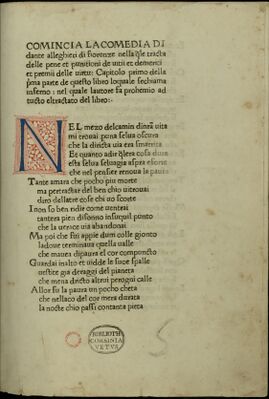 COMINCIA LACOMEDIA DI
dante alleghieri di fiorenze nella q̃le tracta
delle pene et punitioni de uitii et demeriti
et premii delle uirtu: Capitolo primo della
p̃ma parte de questo libro loquale sechiama
inferno: nel quale lautore fa prohemio ad
tucto eltractato del libro:-
NEL mezo delcamin dinr̃a uita
mi trouai puna selua oscura
che la diricta uia era smarrita
Et quanto adir q̃lera cosa dura
esta selua seluagia aspra eforte
che nel pensier renoua la paura
Tante amara che pocho piu morte
ma pertractar del ben chio uitrouai
diro dellaltre cose chi uo scorte
I non so ben ridir come uentrai
tantera pien disonno insuquil punto
che la uerace uia abandonai
Ma poi che fui appie dum colle gionto
ladoue terminaua quella ualle
che mauea dipaura el cor compuncto
Guardai inalto et uidde le sue spalle
uestite gia deraggi del pianeta
che mena dricto altrui perogni calle
Allor fu la paura un pocho cheta
che nellaco del cor mera durata
la nocte chio passi contanta pieta
BIBLIOTH
CORSINIA
VETVS
5